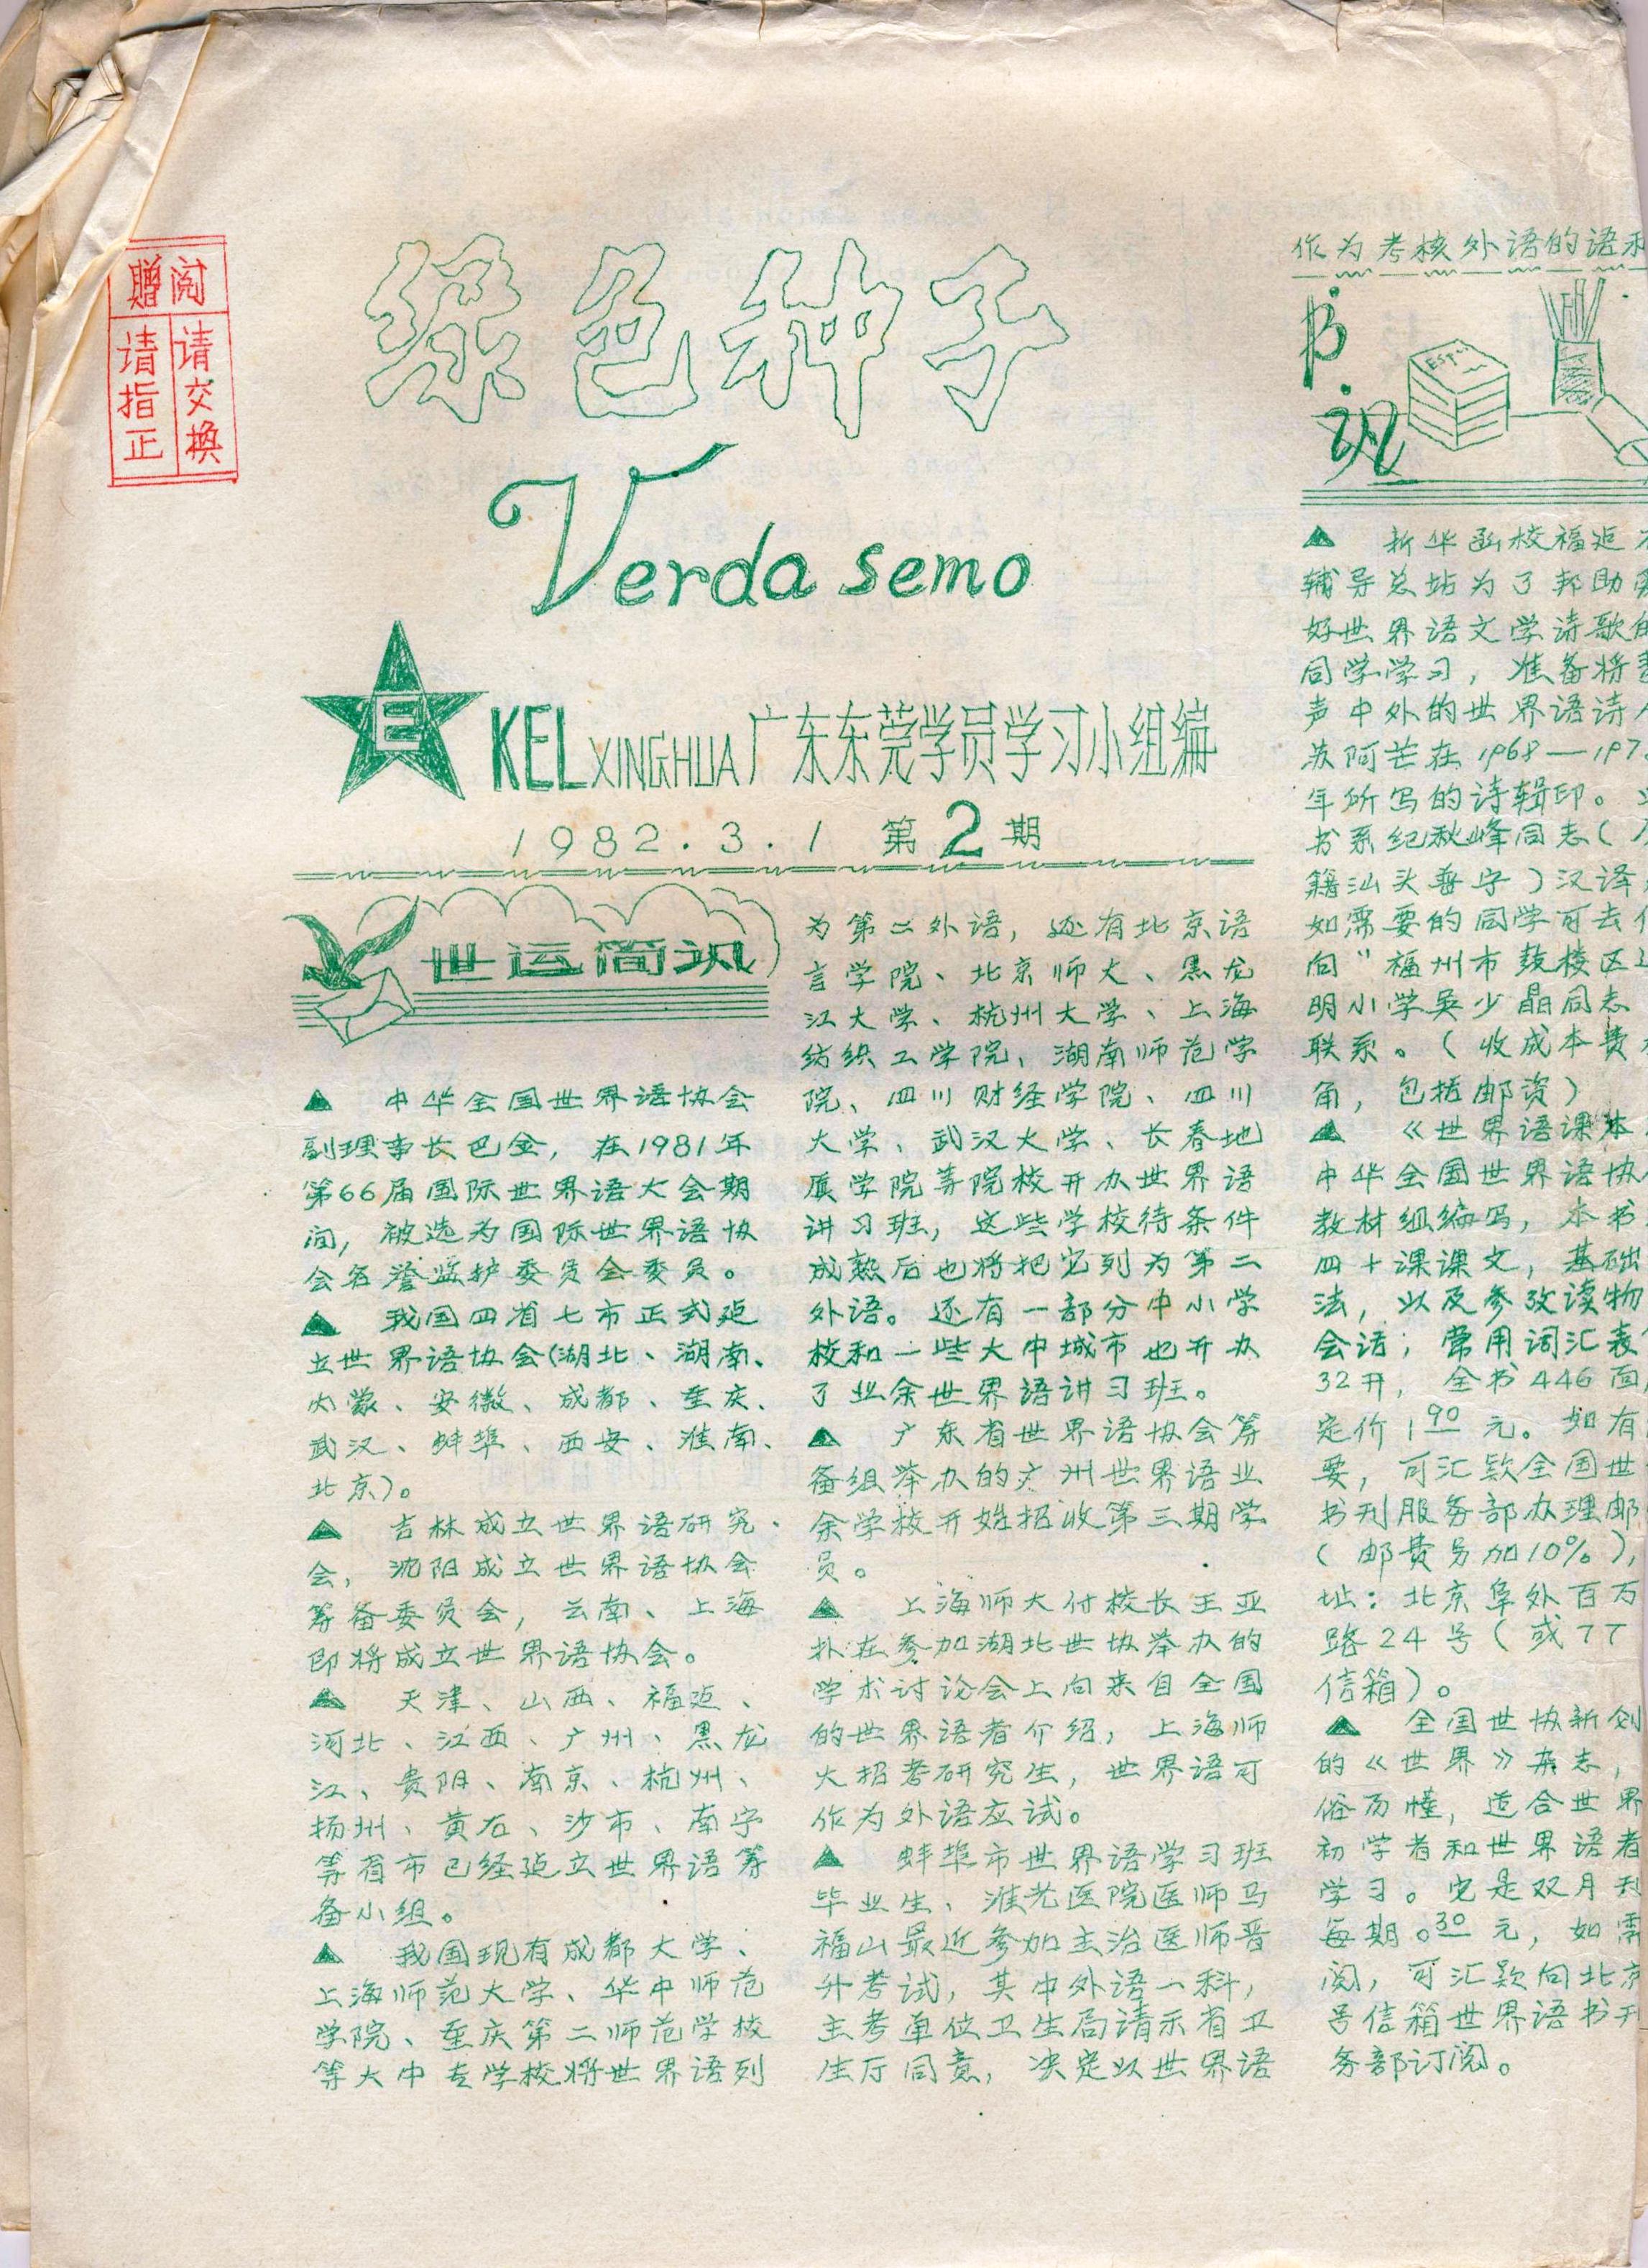 赠阅
请交换
请指正
绿色种子
Verda semo
E
KEL XINGHUA广东东莞学员学习小组编
1982.3.1 第2期
世运简讯
▲ 中华全国世界语协会
副理事长巴金，在1981年
第66届国际世界语大会期
间，被选为国际世界语协
会名誉监护委员会委员。
▲ 我国四省七市正式建
立世界语协会(湖北、湖南、
内蒙、安徽、成都、重庆、
武汉、蚌埠、西安、淮南、
北京)。
▲ 吉林成立世界语研究
会，沈阳成立世界语协会
筹备委员会，云南、上海
即将成立世界语协会。
▲ 天津、山西、福建、
河北、江西、广州、黑龙
江、贵阳、南京、杭州、
扬州、黄石、沙市、南宁
等省市已经建立世界语筹
备小组。
▲ 我国现有成都大学、
上海师范大学、华中师范
学院、重庆第二师范学校
等大中专学校将世界语列
为第二外语，还有北京语
言学院、北京师大、黑龙
江大学、杭州大学、上海
纺织工学院、湖南师范学
院、四川财经学院、四川
大学、武汉大学、长春地
质学院等院校开办世界语
讲习班，这些学校待条件
成熟后也将把它列为第二
外语。还有一部分中小学
校和一些大中城市也开办
了业余世界语讲习班。
▲ 广东省世界语协会筹
备组举办的广州世界语业
余学校开始招收第三期学
员。
▲ 上海师大付校长王亚
朴在参加湖北世协举办的
学术讨论会上向来自全国
的世界语者介绍，上海师
大招考研究生，世界语可
作为外语应试。
▲ 蚌埠市世界语学习班
毕业生、淮光医院医师马
福山最近参加主治医师晋
升考试，其中外语一科，
主考单位卫生局请示省卫
生厅同意，决定以世界语
作为考核外语的语
书讯
Esp
▲ 新华函校福建
辅导总站为了邦助
好世界语文学诗歌
同学学习，准备将
声中外的世界语诗
苏阿芒在1968—197
年所写的诗辑印。
书系纪秋峰同志(
籍汕头普宁)汉译
如需要的同学可去
向"福州市鼓楼区
明小学吴少晶同志
联系。(收成本费
角，包括邮资)
▲ 《世界语课本
中华全国世界语协
教材组编写，本书
四十课课文，基础
法，以及参考读物
会话；常用词汇表
32开，全书446面
定价1.90元。如有
要，可汇款全国世
书刊服务部办理邮
(邮费另加10%)，
址：北京阜外百万
路24号(或77
信箱)。
▲ 全国世协新创
的《世界》杂志，
俗易懂，适合世界
初学者和世界语者
学习。它是双月刊
每期0.30元，如需
阅，可汇款向北京
号信箱世界语书刊
务部订阅。